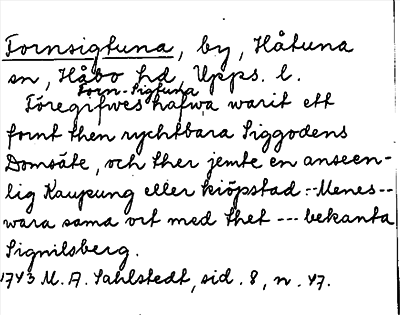 Fornsigtuna, by, Håtuna
sn, Håbo hd, Upps. l.
Forn-Sigtuna
Föregifwes hafwa warit ett
fornt then rychtbara Siggodens
Domsäte, och ther jemte en anseen-
lig Kaupung eller kiöpstad --Menes--
wara sama ort med thet --- bekanta
Signilsberg.
1743 M. A. Sahlstedt, sid. 8, n. 47.